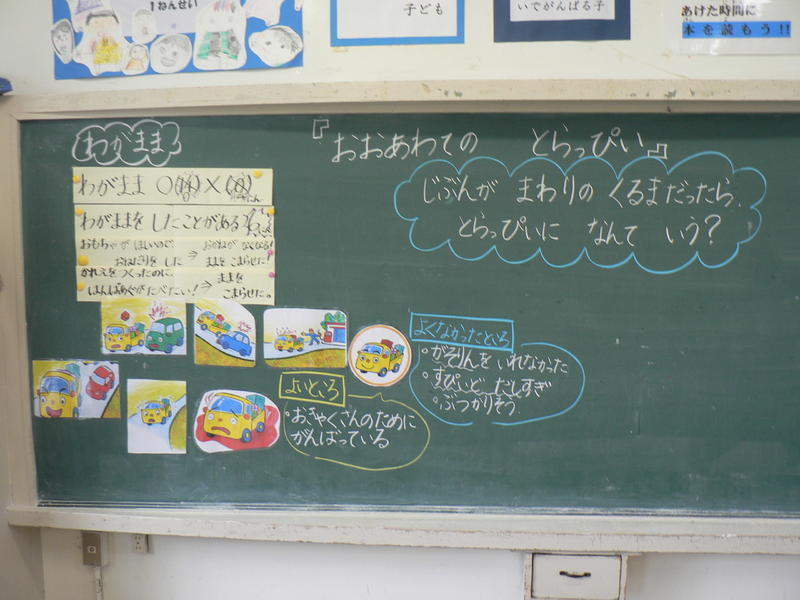 1ねんせい
子ども
いでがんばる子
あけた時間に
本を読もう!!
わがまま
『おおあわての とらっぴい』
じぶんが まわりの くるまだったら、
とらっぴいに なんて いう?
わがまま ○ ×
わがままを したことがある
おもちゃが ほしいので、
おねだりを した ⇒
ままを こまらせた。
かれえをつくったのに、
はんばあぐがたべたい! ⇒
ままを
こまらせた。
よくなかったところ
・がそりんを いれなかった
・すぴいど だしすぎ
・ぶつかりそう
よいところ
・おきゃくさんのために
がんばっている